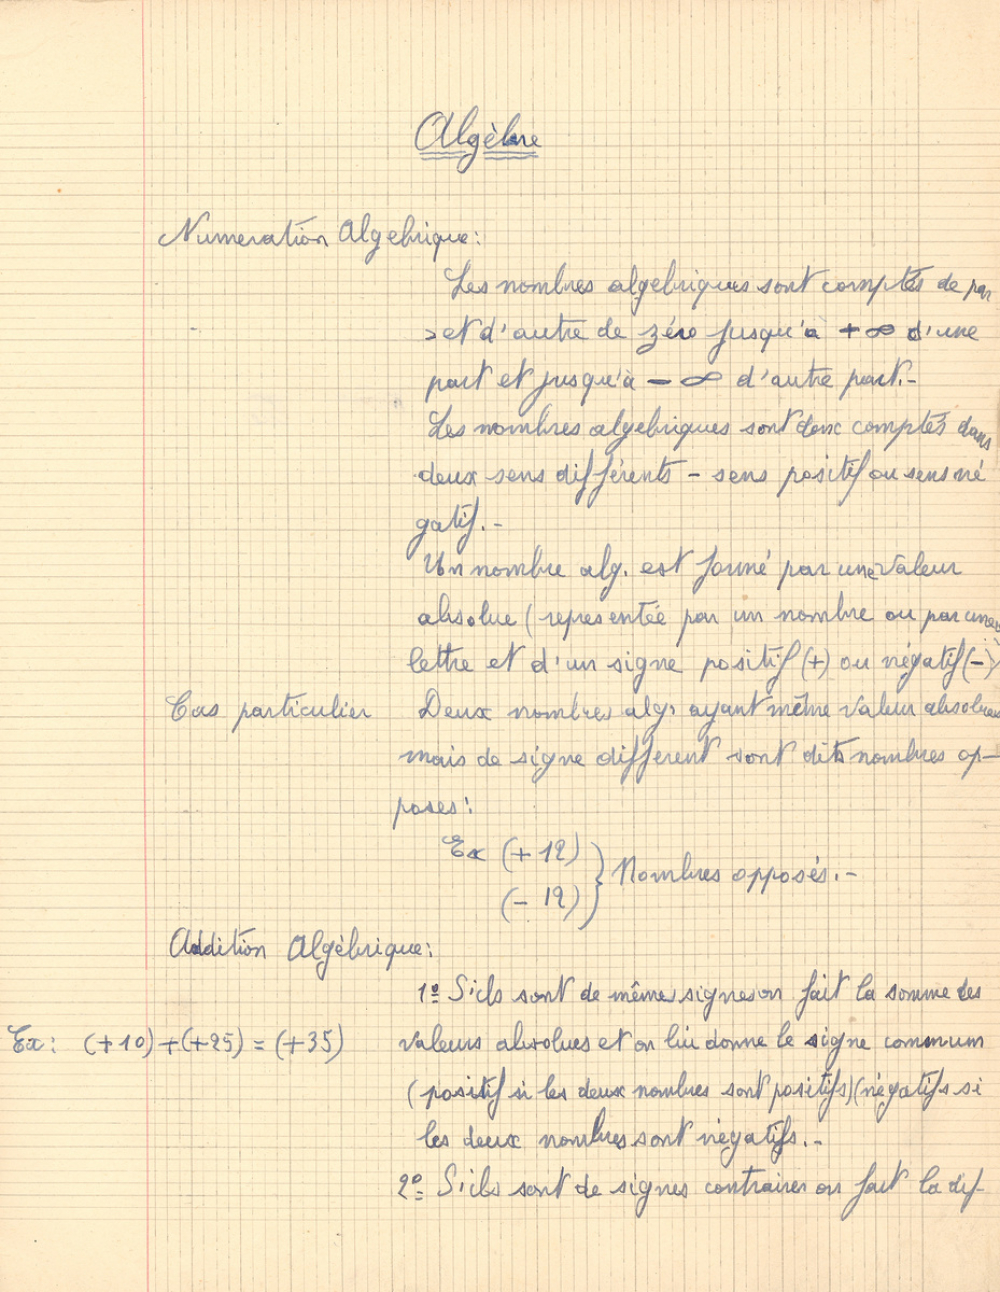 Algèbre
Numeration Algebrique:
Les nombres algebriques sont comptés de par
et d'autre de zéro jusqu'à + ∞ d'une
part et jusqu'à - ∞ d'autre part.-
Les nombres algebriques sont donc comptés dans
deux sens différents - sens positif ou sens né
gatif.-
Un nombre alg. est formé par une valeur
absolue (representée par un nombre ou par une
lettre et d'un signe positif (+) ou négatif (-)
Cas particulier Deux nombres alg. ayant même valeur absolue
mais de signe different sont dits nombres op-
poses:
Ex (+12)
(- 12) } Nombres opposés.-
Addition Algèbrique:
1º S'ils sont de même signes on fait la somme des
Ex: (+10)+(+25) = (+35) valeurs absolues et on lui donne le signe commum
(positif si les deux nombres sont positifs) (négatifs si
les deux nombres sont négatifs.-
2º S'ils sont de signes contraires on fait la dif-